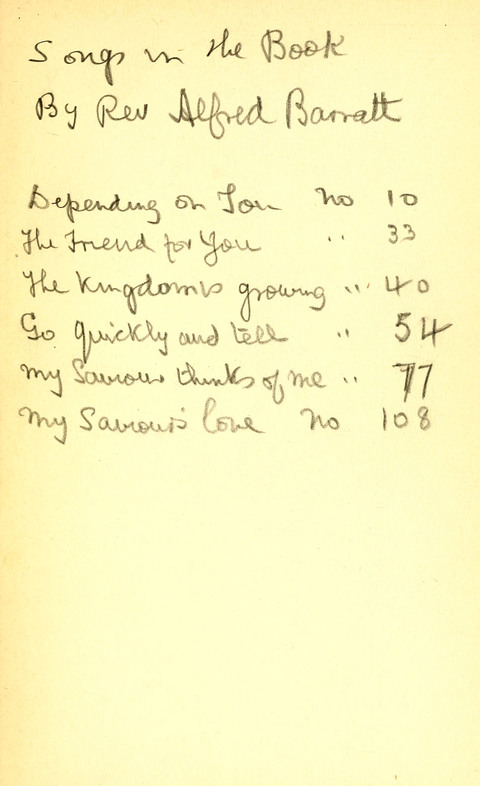 Songs in the Book
By Rev Alfred Barratt
Depending on You No 10
The Friend for You " 33
The Kingdom is growing " 40
Go quickly and tell " 54
My Saviour thinks of me " 77
My Saviour's love No 108